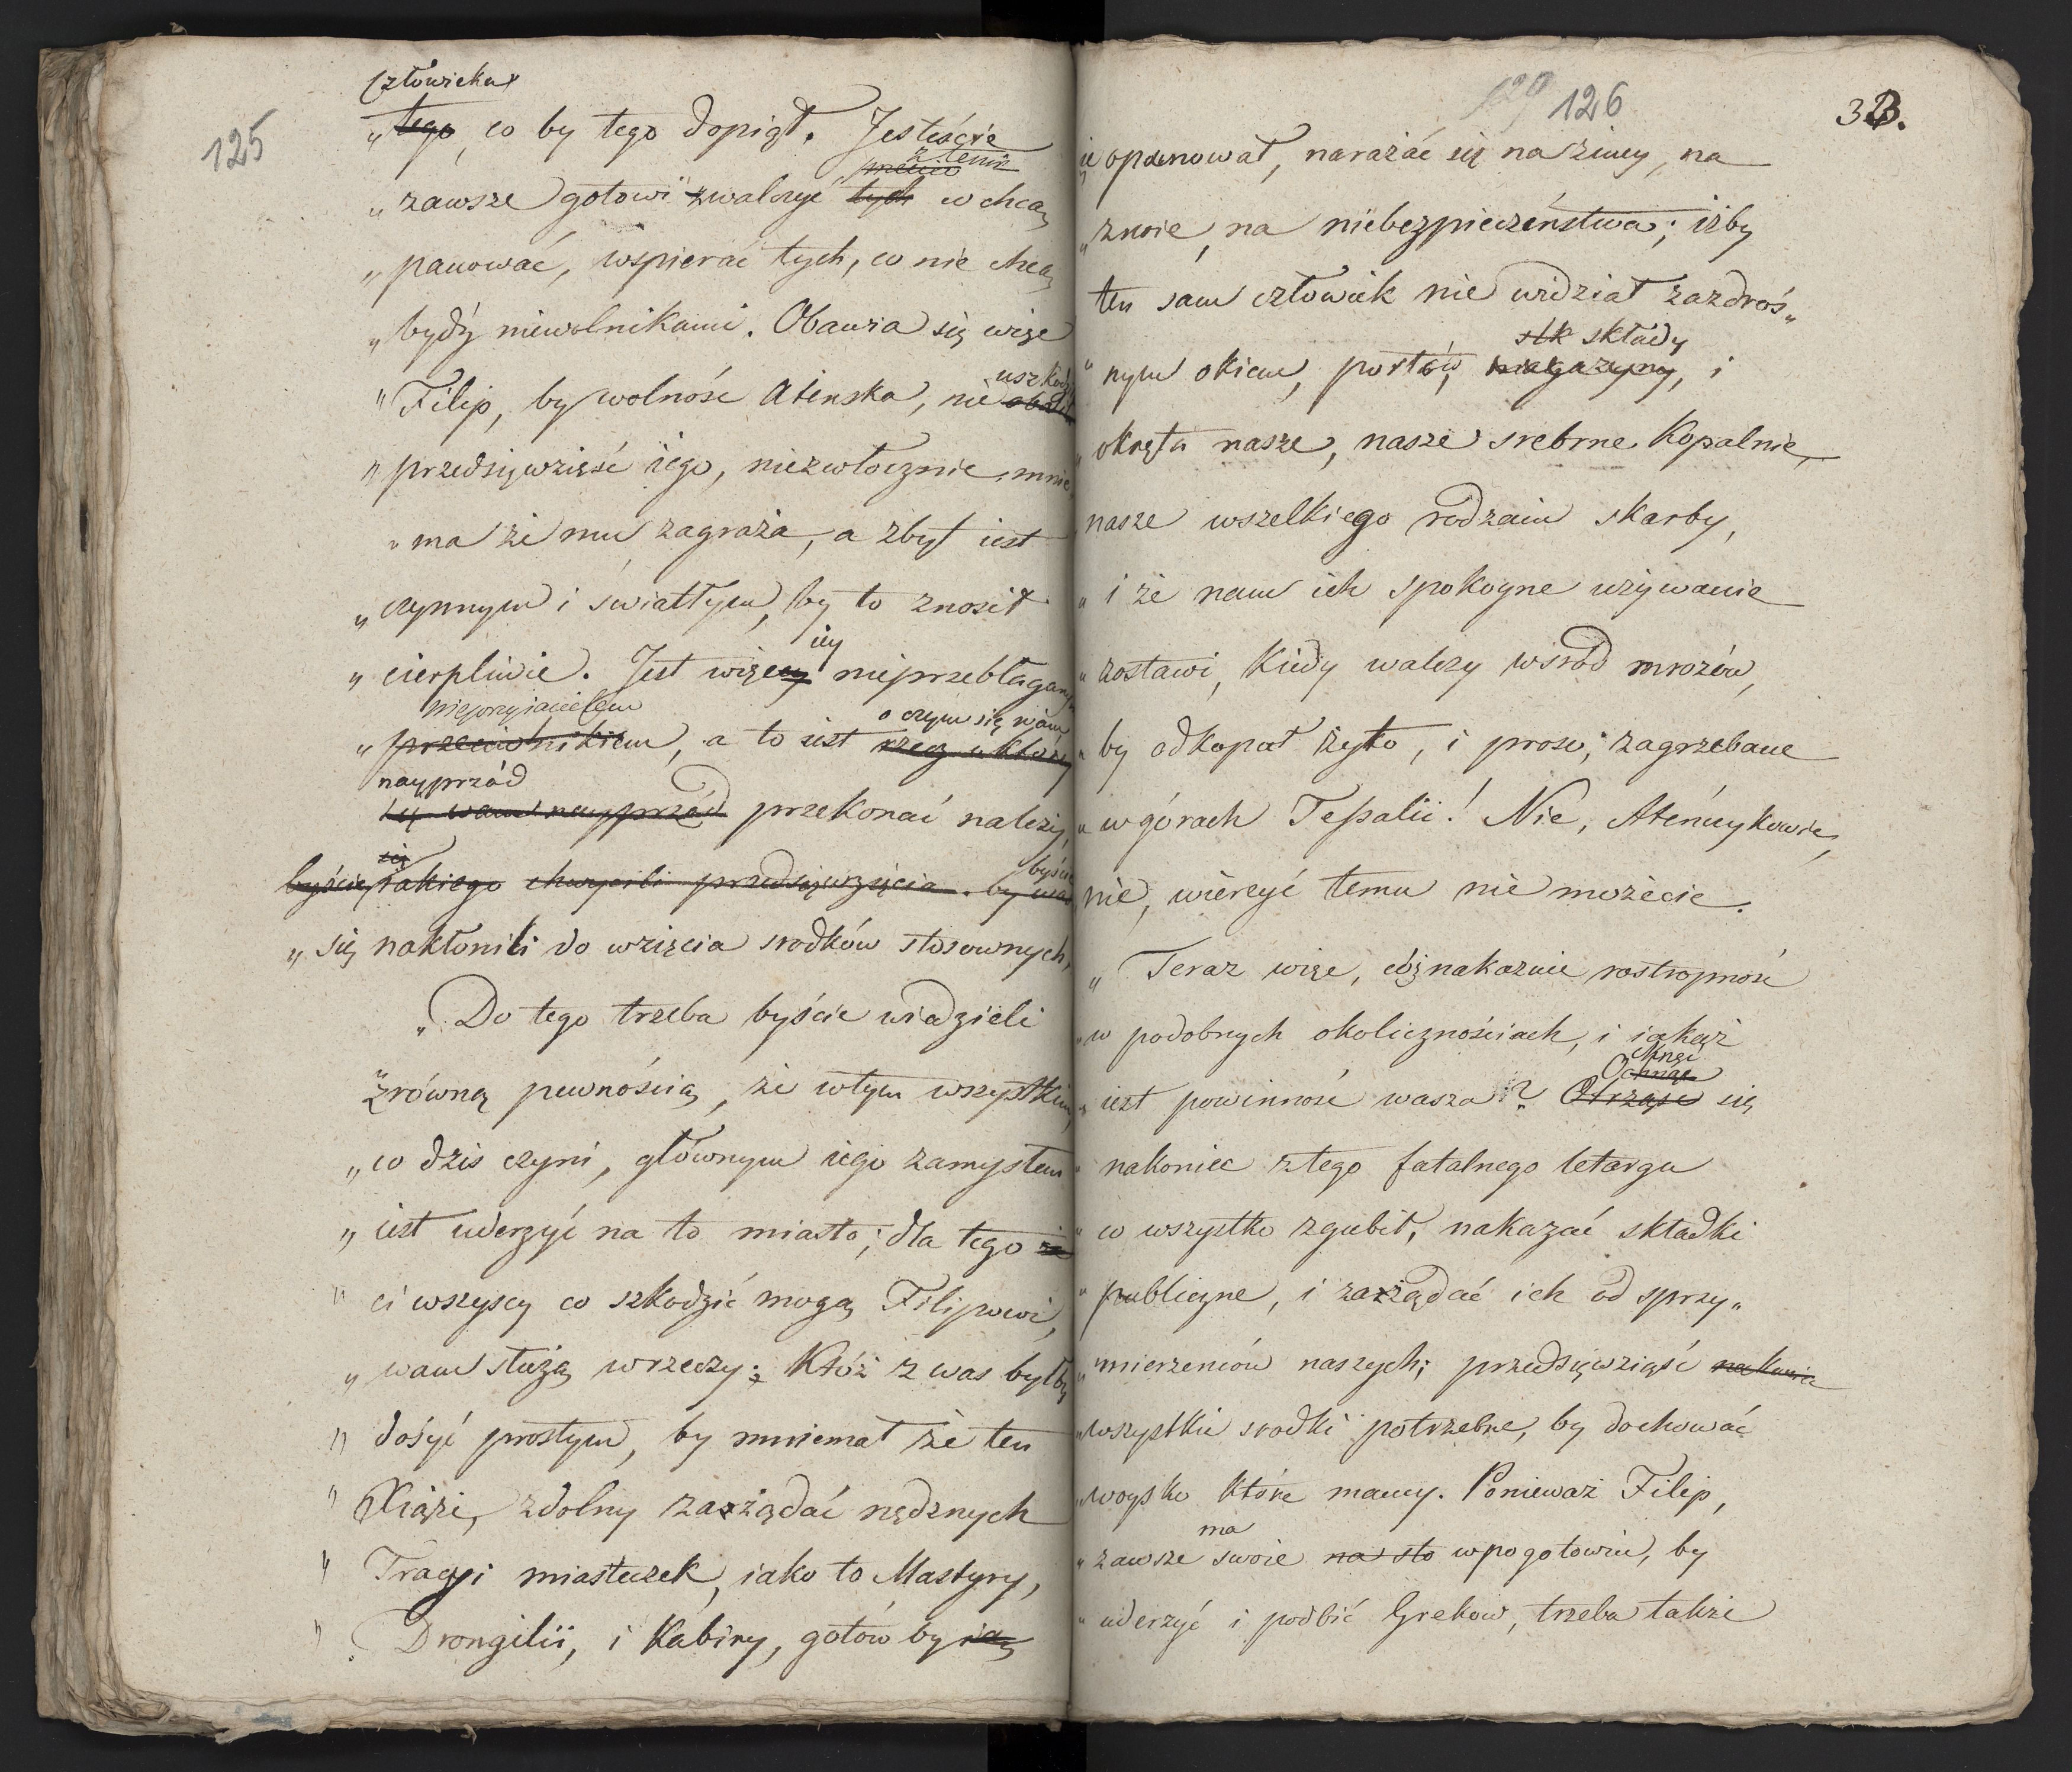 125
człowieka
„tego, co by tego dopiął. Jesteście
z temi
„zawsze gotowi zwalczyć tych co chcą
„panować, wspierać tych, co nie chcą
„bydź niewolnikami. Obawia się więc
uszkodz
„Filip, by wolność Ateńska, nie
„przedsięwzięść iego, niezwłocznie mnie
„ma że mu zagraża, a zbyt iest
„czynnym i światłym, by to znosił
iey
„cierpliwie. Jest więc nieprzebłagany
nieprzyiacielem o czym się wam
„przeciwnikiem, a to iest rzecz o któréy
nayprzód
się wam nayprzód przekonać należy,
się byście
byście iakiego chwycili przedsięwzięcia. by was
„się nakłonili do wzięcia srodków stosownych,
„Do tego trzeba byście wiedzieli
„z równą pewnością, że w tym wszystkim,
„co dzis czyni, głównym iego zamysłem
„iest uderzyć na to miasto; dla tego że
„ci wszyscy co szkodzić mogą Filipowi,
„wam służą w rzeczy; Któż z was byłby
„dosyć prostym, by mniemał że ten
„Xiąże, zdolny zażądać nędznych
„Tracyi miasteczek, iako to Mastyry,
„Drongilii, i Kabiry, gotów by
126
33.
ie opanował, narażać się na zimy, na
„znoie, na niebezpieczeństwa; iżby
ten sam człowiek nie widział zazdroś„
składy
„nym okiem, portów, magazyny, i
„okręta nasze, nasze srebrne Kopalnie,
nasze wszelkiego rodzaiu skarby,
„i że nam ich spokoyne używanie
„zostawi, Kiedy walczy wsród mrozów,
„by odkopał żyto, i proso, zagrzebane
„w górach Tessalii! Nie, Ateńczykowie,
nie, wierzyć temu nie możecie.
„Teraz więc, cóż nakazuie rostropność
„w podobnych okolicznościach, i iakaż
Ocknąć
„iest powinność wasza? Otrząsć się
„nakoniec z tego fatalnego letargu
„co wszystko zgubił, nakazać składki
„publiczne, i zażądać ich od sprzy„
„mierzeńców naszych; przedsięwziąść nakoniec
„wszystkie srodki potrzebne, by dochować
„woysko Które mamy. Ponieważ Filip,
ma
„zawsze swoie na sto w pogotowiu, by
„uderzyć i podbić Greków, trzeba także